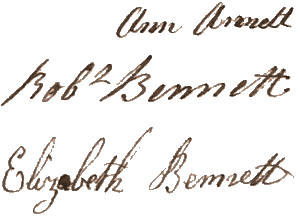 Ann Annett
Robt Bennett
Elizabeth Bennett